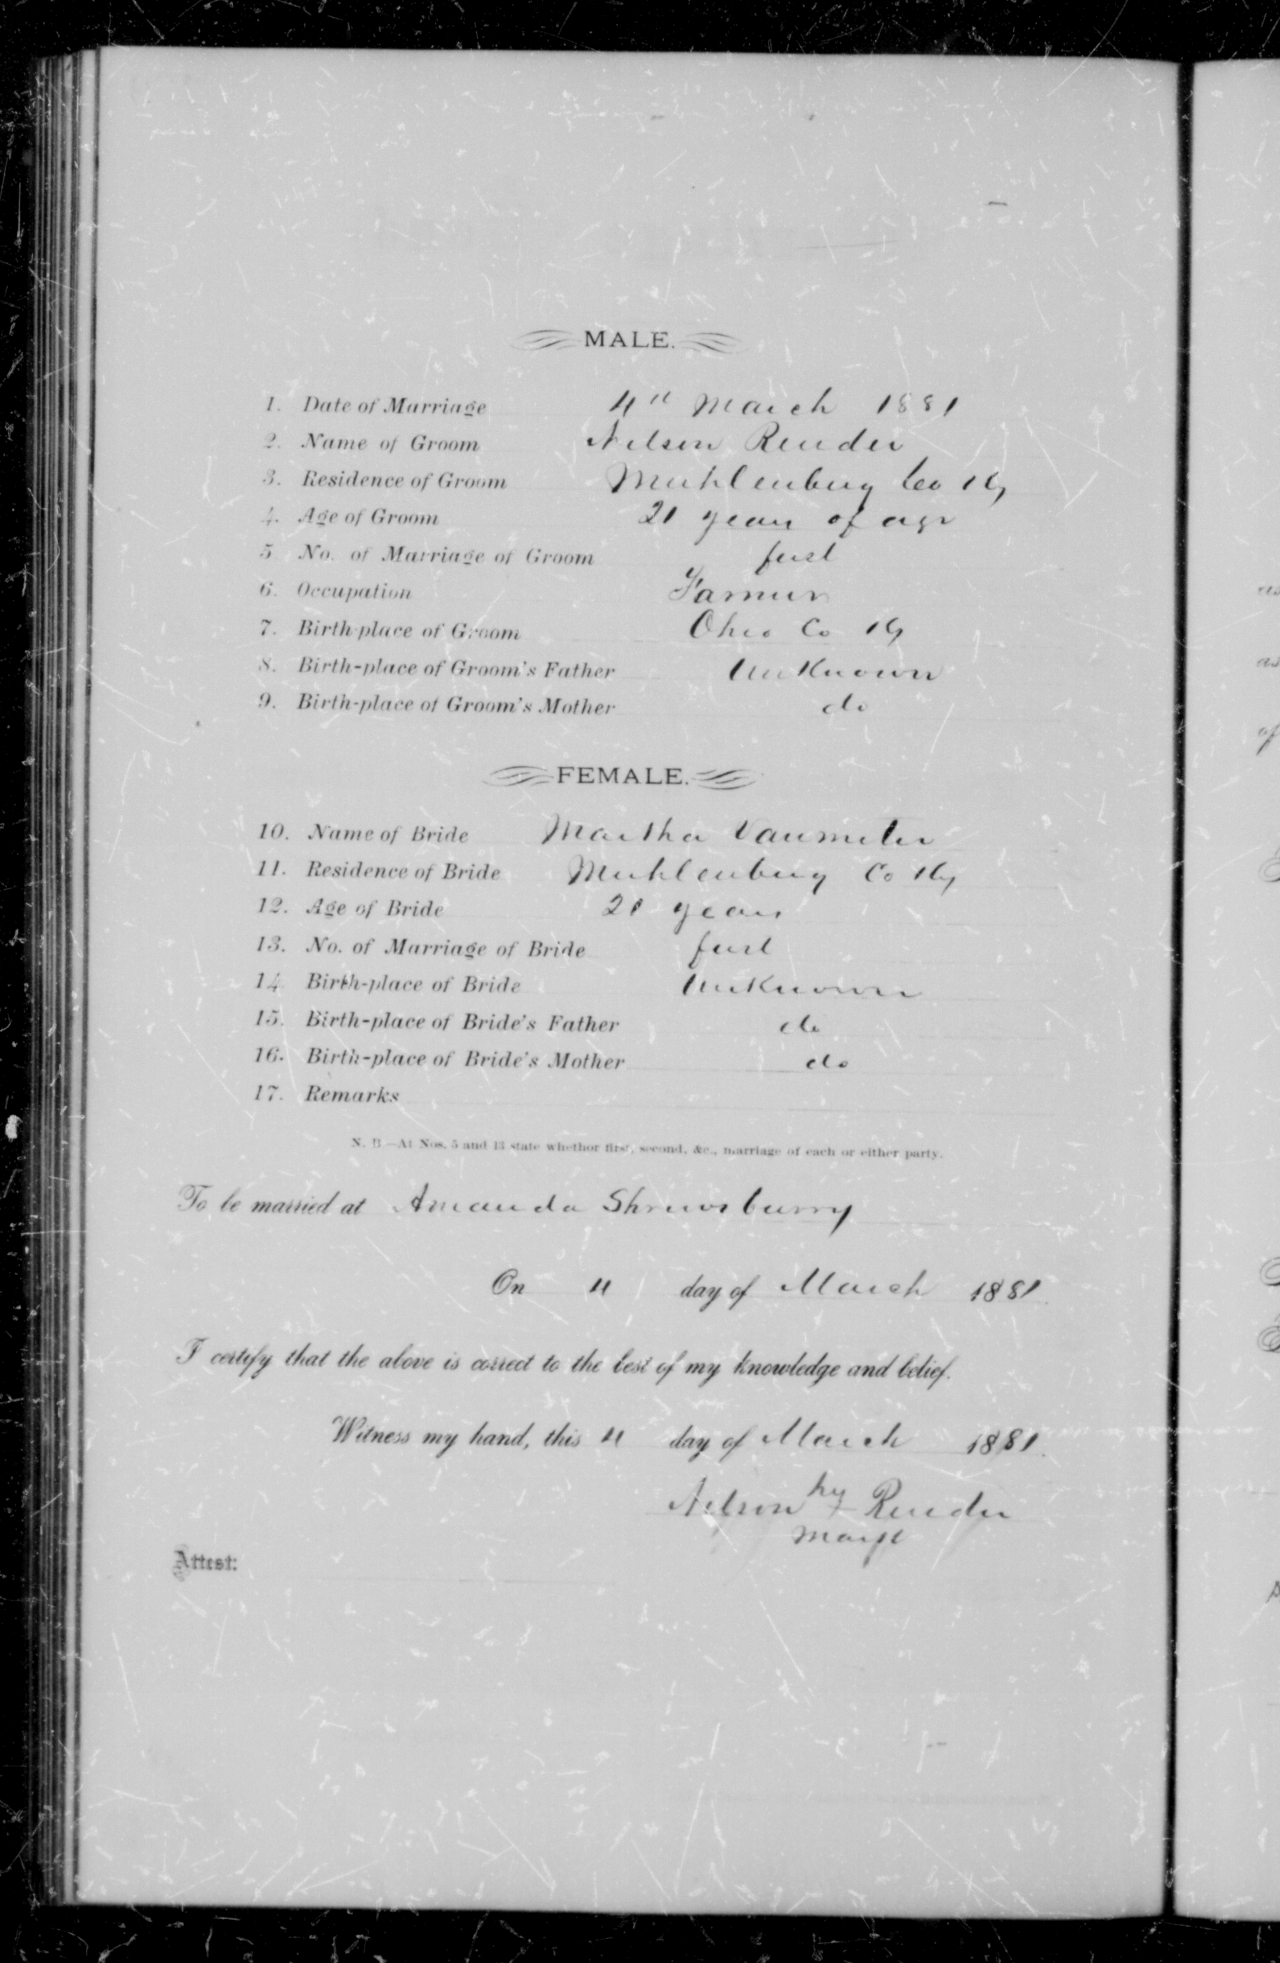 MALE.
1. Date of Marriage 4th March 1881
2. Name of Groom Nelson Render
3. Residence of Groom Muhlenburg Co Ky
4. Age of Groom 21 years of age
5 No. of Marriage of Groom first
6. Occupation Farmer
7. Birth-place of Groom Ohio Co Ky
8. Birth-place of Groom's Father Unknown
9. Birth-place of Groom's Mother do
FEMALE.
10. Name of Bride Martha Vanmeter
11. Residence of Bride Muhlenburg Co Ky
12. Age of Bride 21 years
13. No. of Marriage of Bride first
14 Birth-place of Bride Unknown
15. Birth-place of Bride's Father do
16. Birth-place of Bride's Mother do
17. Remarks
N. B.—At Nos. 5 and 13 state whether first, second, &c., marriage of each or either party.
To be married at Amanda Shrewsburry
On 4 day of March 1881
I certify that the above is correct to the best of my knowledge and belief.
Witness my hand, this 4 day of March 1881.
Nelson his x Render
mark
Attest: